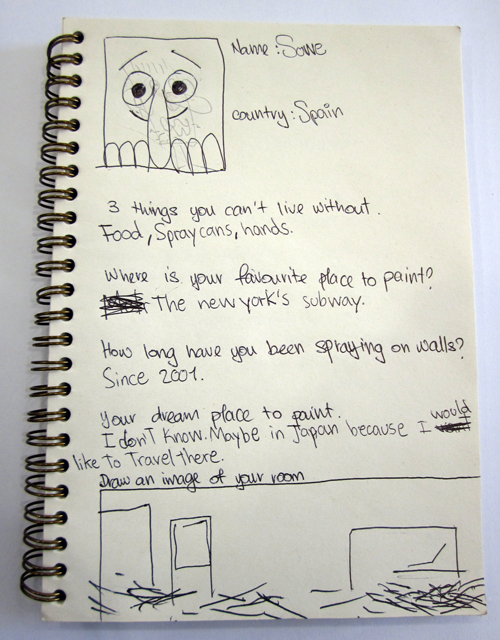 Name: Sowe
country: Spain
3 things you can't live without.
Food, Spraycans, hands.
Where is your favourite place to paint?
The new york's subway.
How long have you been spraying on walls?
Since 2001.
Your dream place to paint.
I don't know. Maybe in Japan because I would
like to Travel there.
Draw an image of your room